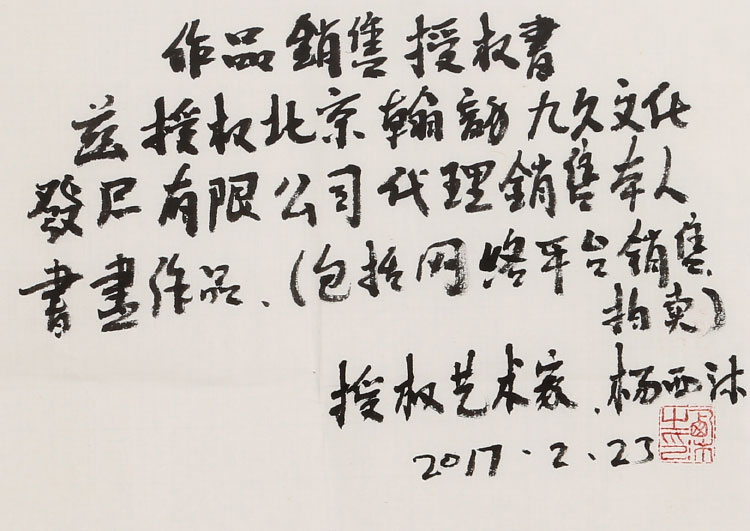 作品銷售授权書
兹授权北京翰詢九久文化
發展有限公司代理銷售本人
書畫作品、(包括网络平台銷售
拍卖)
授权艺术家、杨西沐
2017.2.23